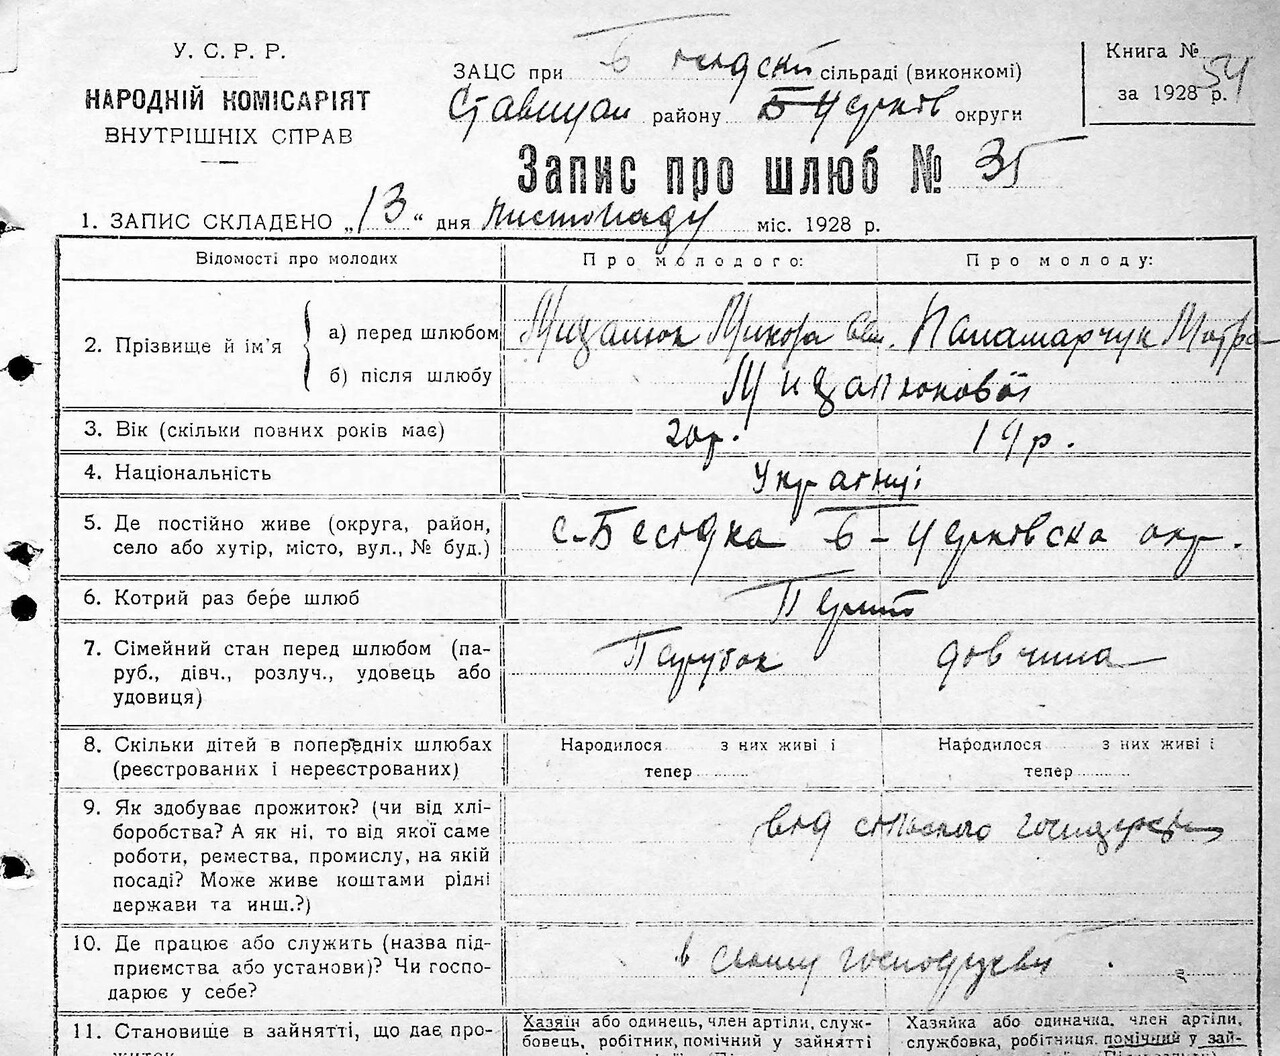 У. С. Р. Р.
НАРОДНІЙ КОМІСАРІЯТ
ВНУТРІШНІХ СПРАВ
ЗАЦС при сільраді (виконкомі)
району Б Церків округи
Книга № 54
за 1928 р.
Запис про шлюб № 35
1. ЗАПИС СКЛАДЕНО „13“ дня листопаду міс. 1928 р.
Відомості про молодих Про молодого: Про молоду:
2. Прізвище й ім’я а) перед шлюбом Микола Паламарчук Мотря
б) після шлюбу
3. Вік (скільки повних років має) 20р. 19р.
4. Національність Українці
5. Де постійно живе (округа, район, с-Бесідка Б-Церківська окр.
село або хутір, місто, вул., № буд.)
6. Котрий раз бере шлюб
7. Сімейний стан перед шлюбом (па- Парубок дівчина
руб., дівч., розлуч., удовець або
удовиця)
8. Скільки дітей в попередніх шлюбах Народилося з них живі і Народилося з них живі і
(реєстрованих і нереєстрованих) тепер тепер
9. Як здобуває прожиток? (чи від хлі- від сільського
боробства? А як ні, то від якої саме
роботи, ремества, промислу, на якій
посаді? Може живе коштами рідні
держави та инш.?)
10. Де працює або служить (назва під- в своєму господарстві
приємства або установи)? Чи госпо-
дарює у себе?
11. Становище в зайнятті, що дає про- Хазяїн або одинець, член артілі, служ- Хазяйка або одиначка, член артілі,
житок бовець, робітник, помічний у зайнятті службовка, робітниця, помічний у зай-